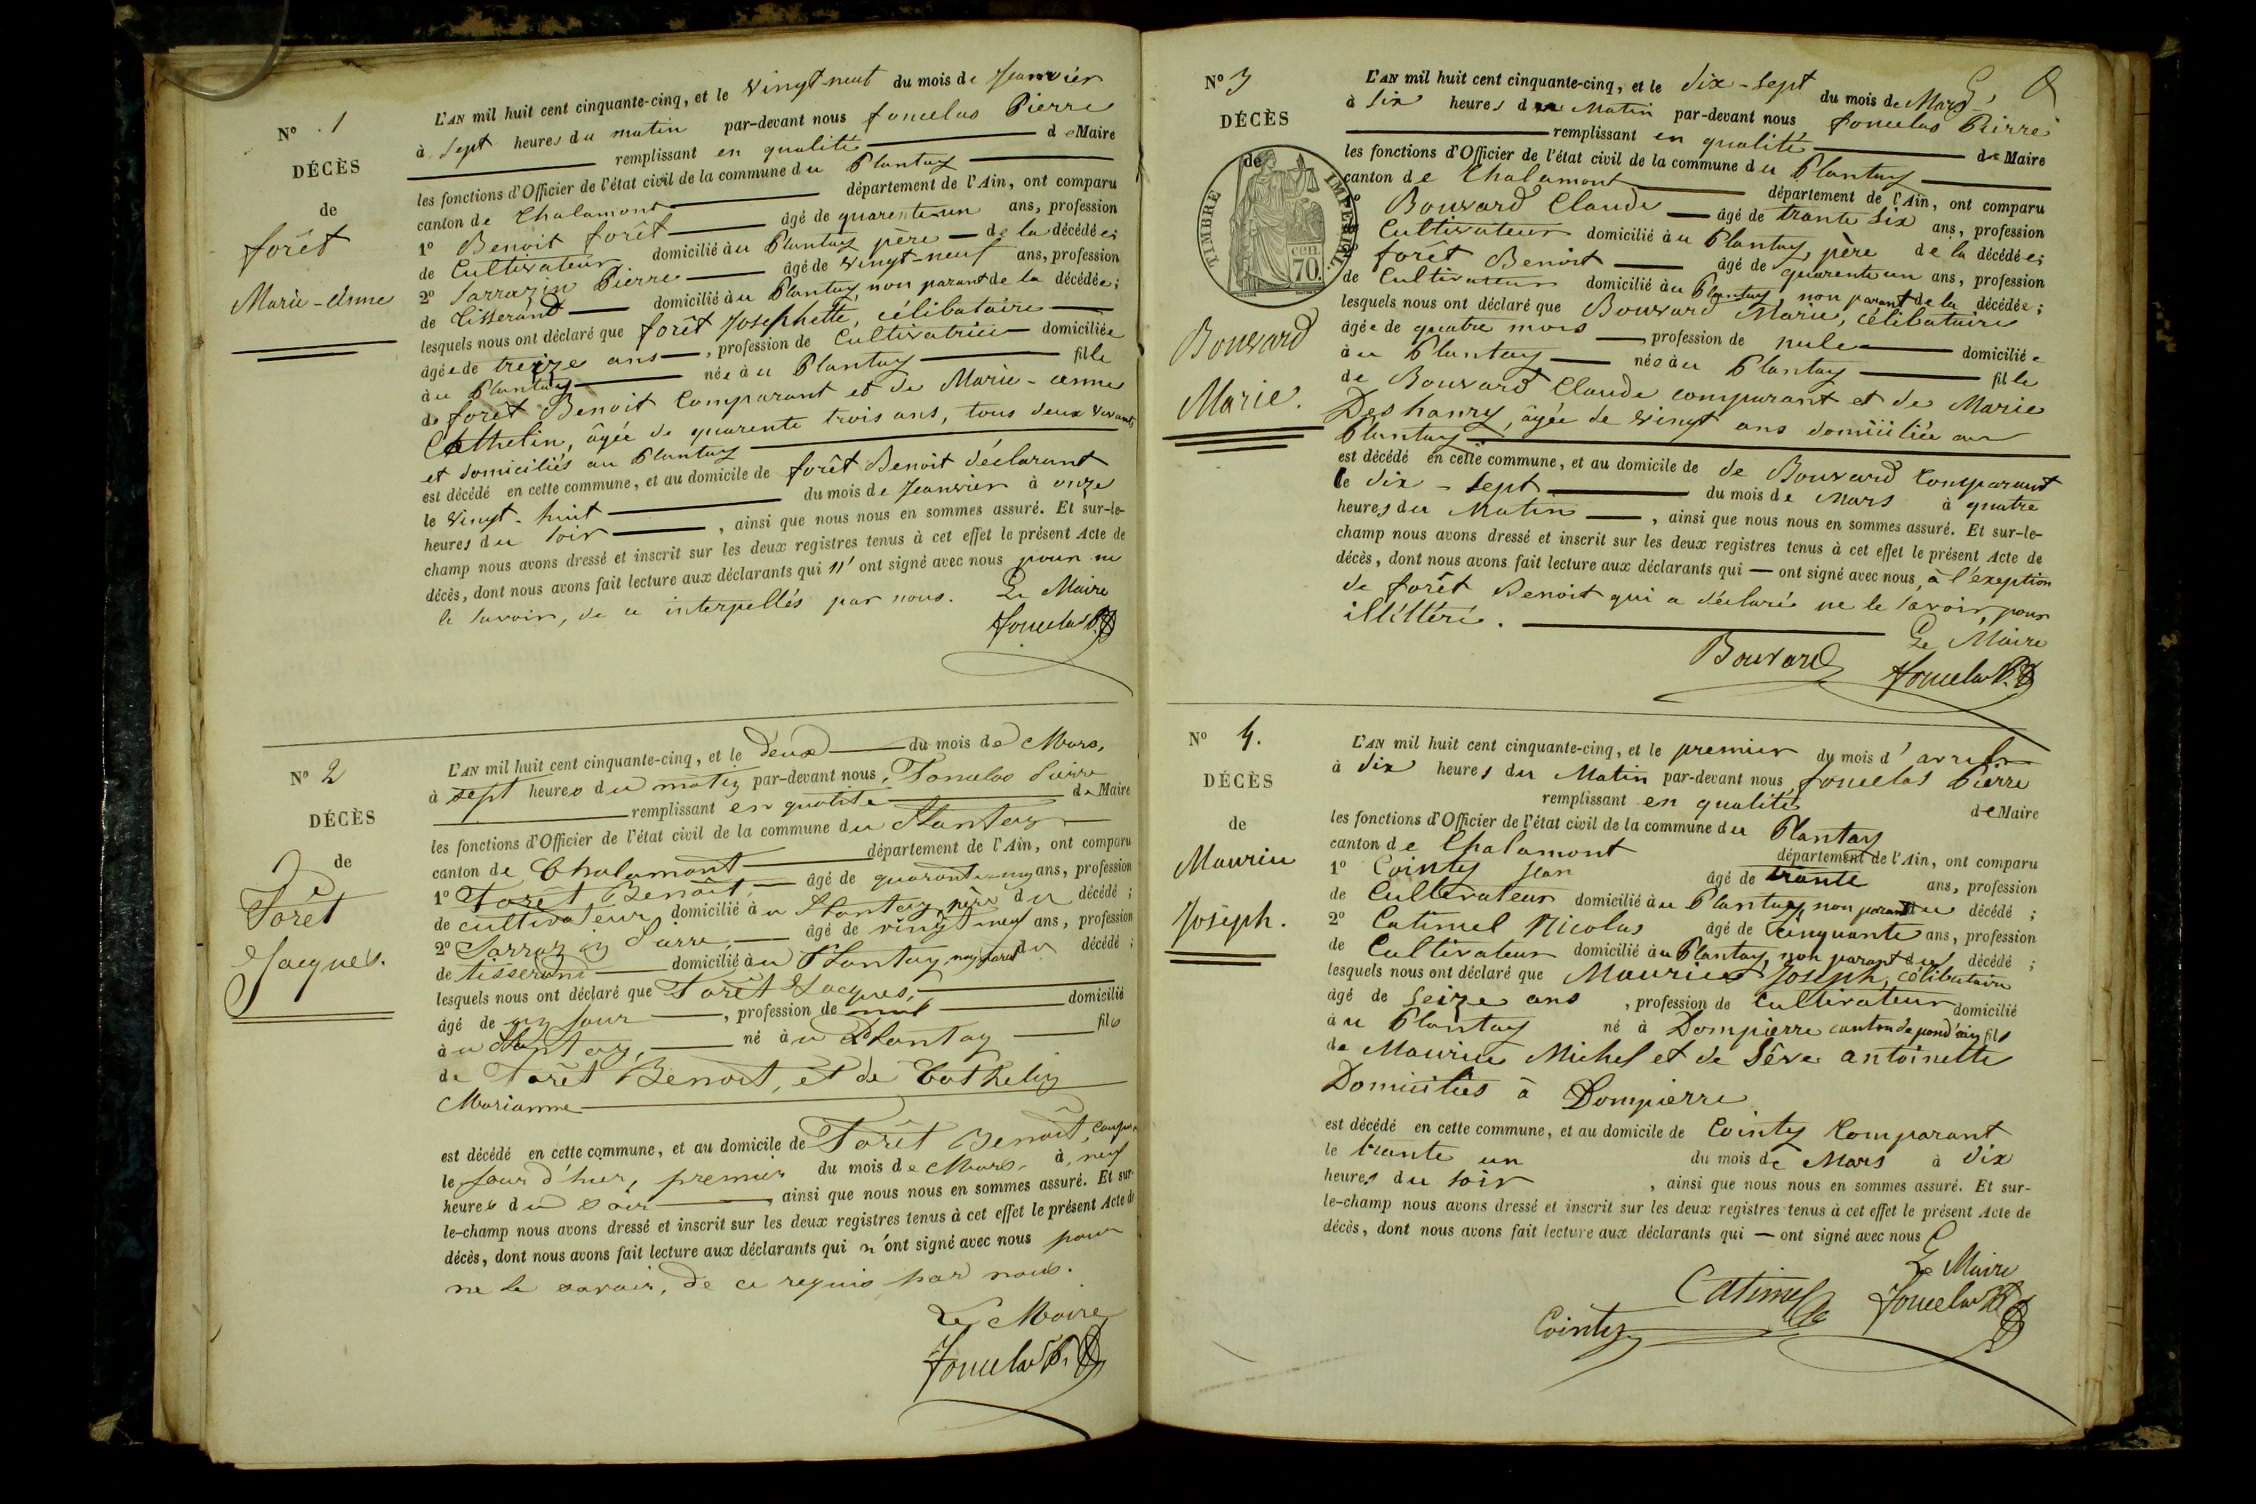 N° 1
DÉCÈS
de
forêt
Marie-Anne
L'AN mil huit cent cinquante-cinq, et le vingt-neuf du mois de Jeanvier
à sept heures du matin par-devant nous Pierre
remplissant en qualité de Maire
les fonctions d'Officier de l'état civil de la commune du Plantay
canton de Chalamont département de l'Ain, ont comparu
1° Benoit forêt âgé de quarente-un ans, profession
de Cultivateur domicilié au Plantay père de la décédée;
2° Sarrazin Pierre âgé de vingt-neuf ans, profession
de Tisserand domicilié au Plantay non parant de la décédée;
lesquels nous ont déclaré que forêt Josephette, célibataire
âgée de treize ans, profession de Cultivatrice domiciliée
au Plantay née au Plantay fille
de forêt Benoit Comparant et de Marie-anne
Cathelin, âgée de quarente trois ans, tous deux vivants
et domiciliés au Plantay
est décédé en cette commune, et au domicile de forêt Benoit déclarant
le vingt-huit du mois de Jeanvier à onze
heures du soir, ainsi que nous nous en sommes assuré. Et sur-le-
champ nous avons dressé et inscrit sur les deux registres tenus à cet effet le présent Acte de
décès, dont nous avons fait lecture aux déclarants qui n'ont signé avec nous pour ne
le savoir, de ce interpellés par nous. Le Maire
N° 2
DÉCÈS
de
Forêt
Jacques.
L'AN mil huit cent cinquante-cinq, et le deux du mois de Mars,
à sept heures du matin par-devant nous, Pierre
remplissant en qualité de Maire
les fonctions d'Officier de l'état civil de la commune du Plantay
canton de Chalamont département de l'Ain, ont comparu
1° Forêt Benoît, âgé de quarante-un ans, profession
de cultivateur domicilié au Plantay, père du décédé;
2° Sarrazin Pierre, âgé de vingt-neuf ans, profession
de tisserand domicilié au Plantay non parent du décédé;
lesquels nous ont déclaré que Forêt Jacques,
âgé de un jour, profession de nul domicilié
au Plantay, né au Plantay fils
de Forêt Benoît, et de Cathelin
Marianne
est décédé en cette commune, et au domicile de Forêt Benoît,
le jour d'hier, premier du mois de Mars, à neuf
heures du soir, ainsi que nous nous en sommes assuré. Et sur-
le-champ nous avons dressé et inscrit sur les deux registres tenus à cet effet le présent Acte de
décès, dont nous avons fait lecture aux déclarants qui n'ont signé avec nous pour
ne le savoir, de ce requis par nous.
Le Maire
N° 3
DÉCÈS
de
TIMBRE IMPERIAL
70 cen
Bouvard
Marie.
L'AN mil huit cent cinquante-cinq, et le dix-sept du mois de Mars
à six heures du Matin par-devant nous Pierre
remplissant en qualité de Maire
les fonctions d'Officier de l'état civil de la commune du Plantay
canton de Chalamont département de l'Ain, ont comparu
Bouvard Claude âgé de trante six ans, profession
Cultivateur domicilié au Plantay, père de la décédée;
forêt Benoit âgé de quarente un ans, profession
de Cultivateur domicilié au Plantay, non parant de la décédée;
lesquels nous ont déclaré que Bouvard Marie, célibataire
âgée de quatre mois profession de nule domiciliée
au Plantay née au Plantay fille
de Bouvard Claude comparant et de Marie
Deshanry, âgée de vingt ans domiciliée au
Plantay
est décédé en cette commune, et au domicile de de Bouvard Comparant
le dix-sept du mois de Mars à quatre
heures du Matin, ainsi que nous nous en sommes assuré. Et sur-le-
champ nous avons dressé et inscrit sur les deux registres tenus à cet effet le présent Acte de
décès, dont nous avons fait lecture aux déclarants qui — ont signé avec nous, à l'exeption
de forêt Benoit qui a déclaré ne le savoir, pour
illétéré.
Le Maire
Bouvard
N° 4.
DÉCÈS
de
Maurice
Joseph.
L'AN mil huit cent cinquante-cinq, et le premier du mois d'avril
à dix heures du Matin par-devant nous Pierre
remplissant en qualité de Maire
les fonctions d'Officier de l'état civil de la commune du Plantay
canton de Chalamont département de l'Ain, ont comparu
1° Cointy Jean âgé de trante ans, profession
de Cultivateur domicilié au Plantay, non parant du décédé;
2° Catimel Nicolas âgé de Cinquante ans, profession
de Cultivateur domicilié au Plantay, non parant du décédé;
lesquels nous ont déclaré que Maurice Joseph, célibataire
âgé de seize ans, profession de Cultivateur domicilié
au Plantay né à Dompierre canton de fils
de Maurice Michel et de Sêve antoinette
Domiciliés à Dompierre
est décédé en cette commune, et au domicile de Cointy Comparant
le trante un du mois de Mars à dix
heures du soir, ainsi que nous nous en sommes assuré. Et sur-
le-champ nous avons dressé et inscrit sur les deux registres tenus à cet effet le présent Acte de
décès, dont nous avons fait lecture aux déclarants qui — ont signé avec nous
Le Maire
Catimel
Cointy